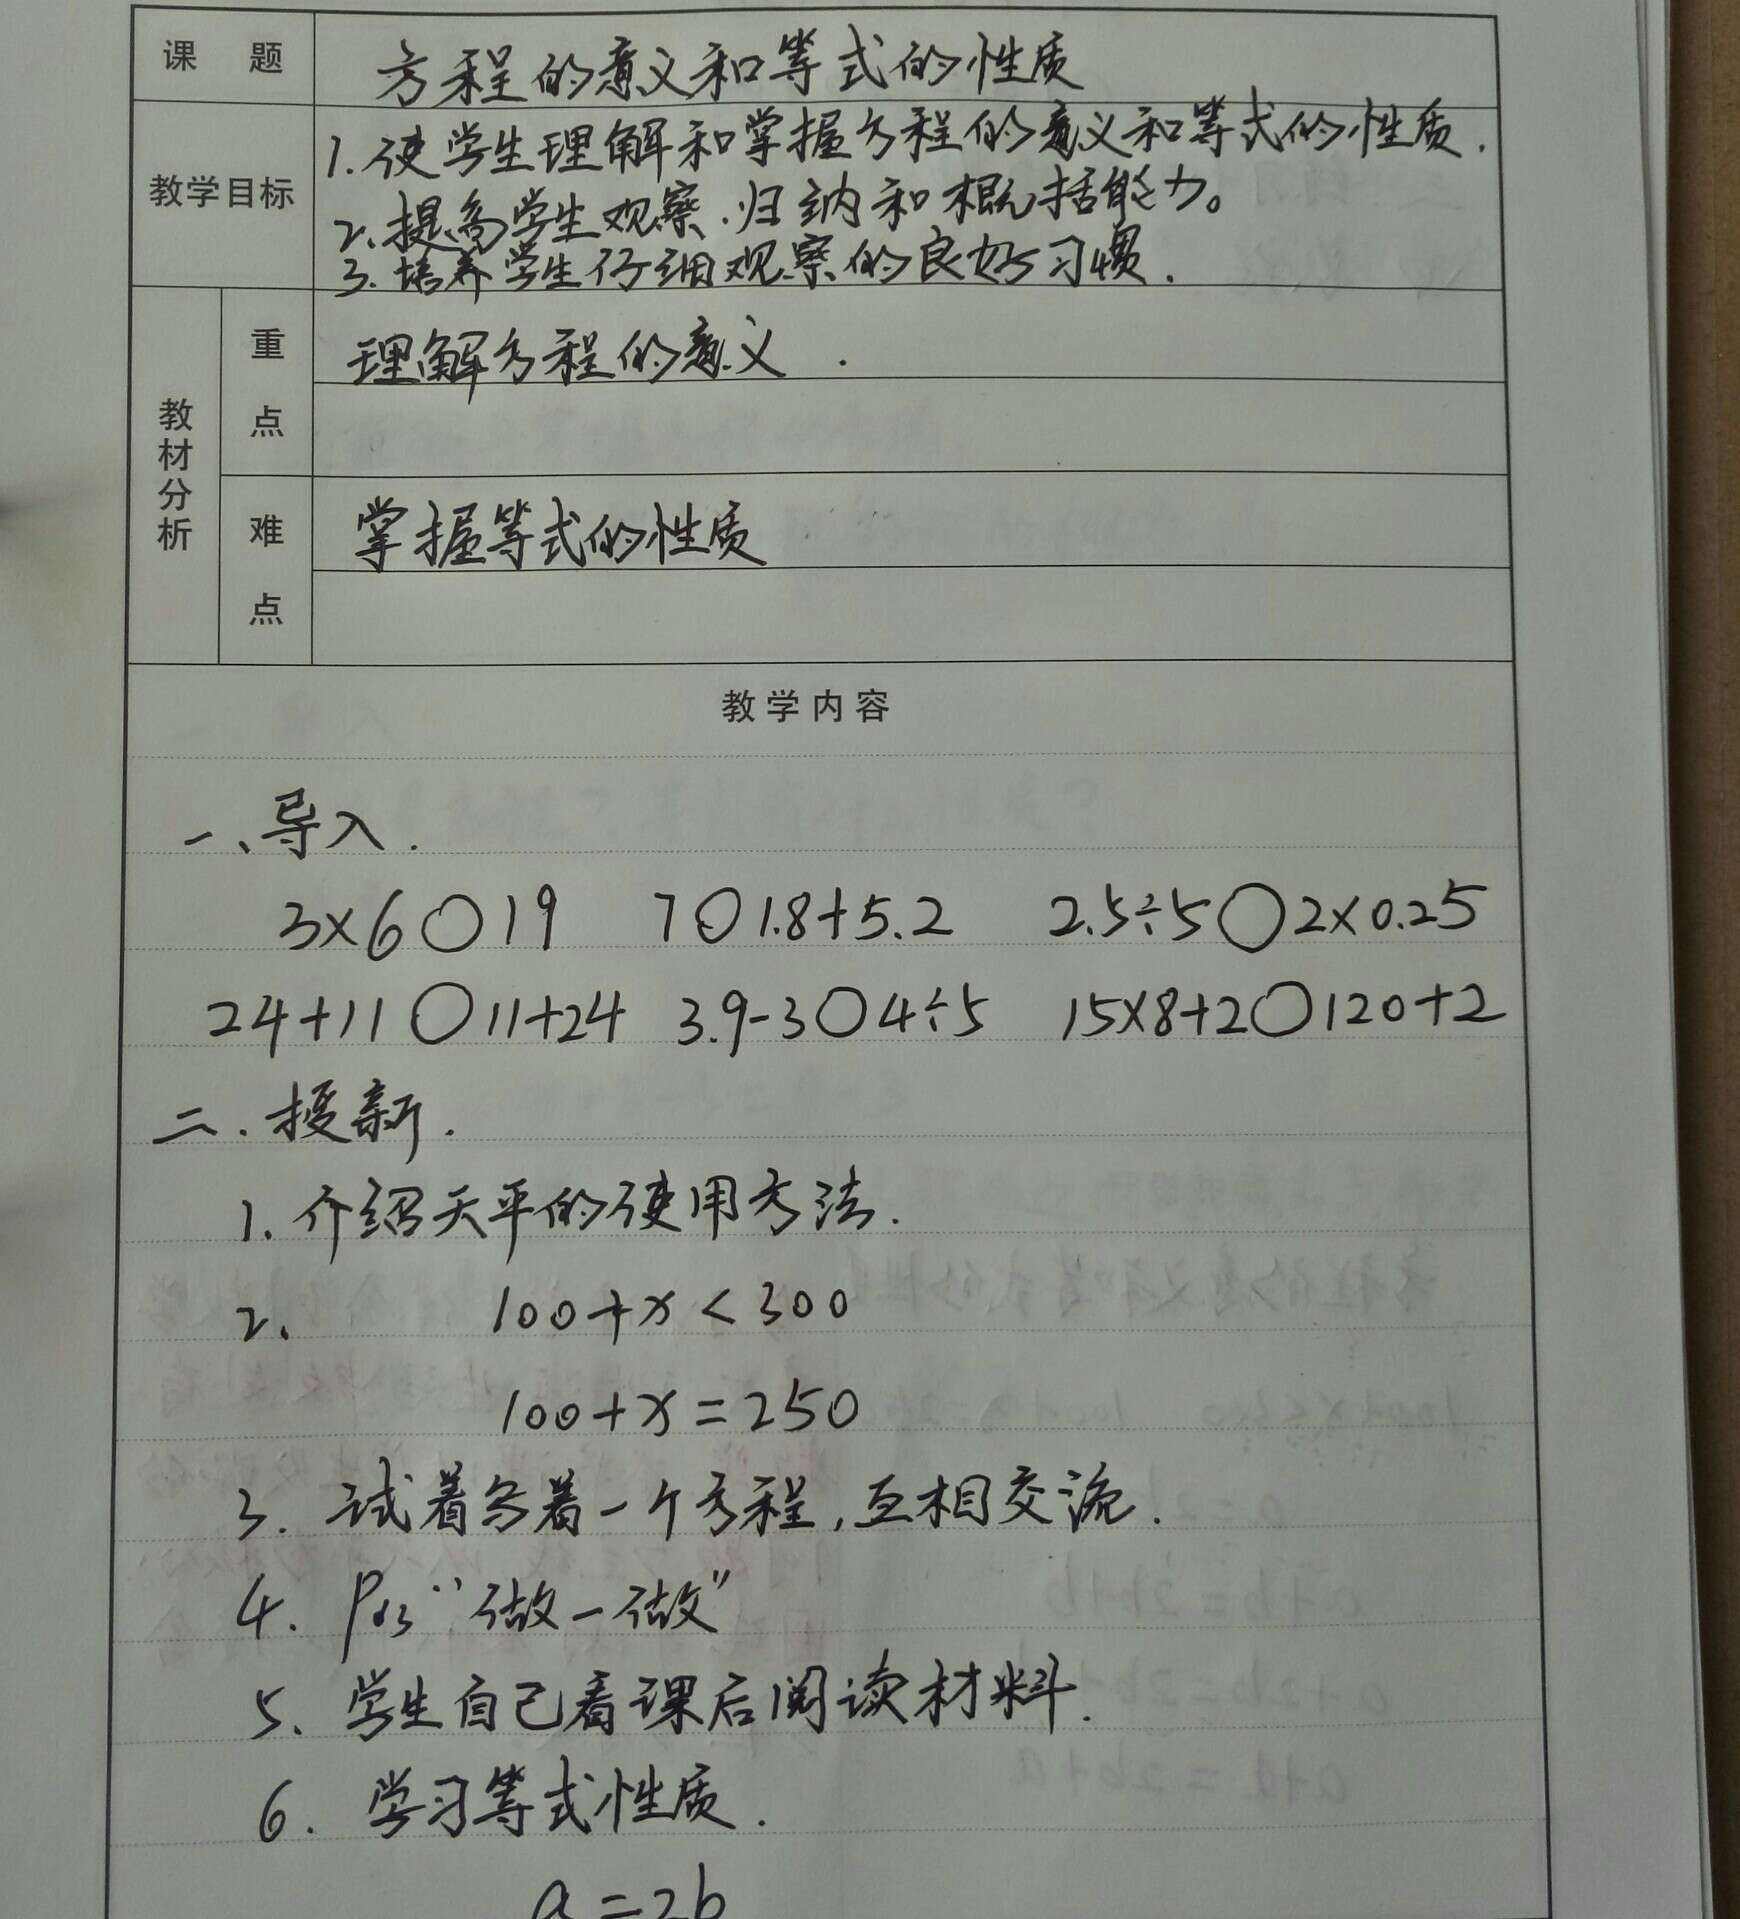 课 题 方程的意义和等式的性质
教学目标 1.使学生理解和掌握方程的意义和等式的性质.
2.提高学生观察.归纳和概括能力。
3.培养学生仔细观察的良好习惯.
教材分析
重点 理解方程的意义.
难点 掌握等式的性质
教学内容
一、导入.
3×6○19 7○1.8+5.2 2.5÷5○2×0.25
24+11○11+24 3.9-3○4÷5 15×8+2○120+2
二.授新.
1.介绍天平的使用方法.
2. 100+x<300
100+x=250
3.试着写着一个方程,互相交流.
4. P63"做一做"
5、学生自己看课后阅读材料.
6.学习等式性质.
a=2b